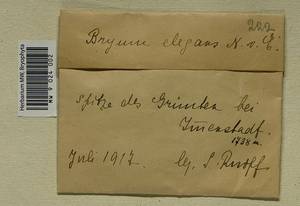 222
Bryum elegans N. v. E.
Spitze des Grünten bei
Immenstadt.
1738 m.
Juli 1917. lg.
Herbarium MW, Bryophyta
MW 9 024 002